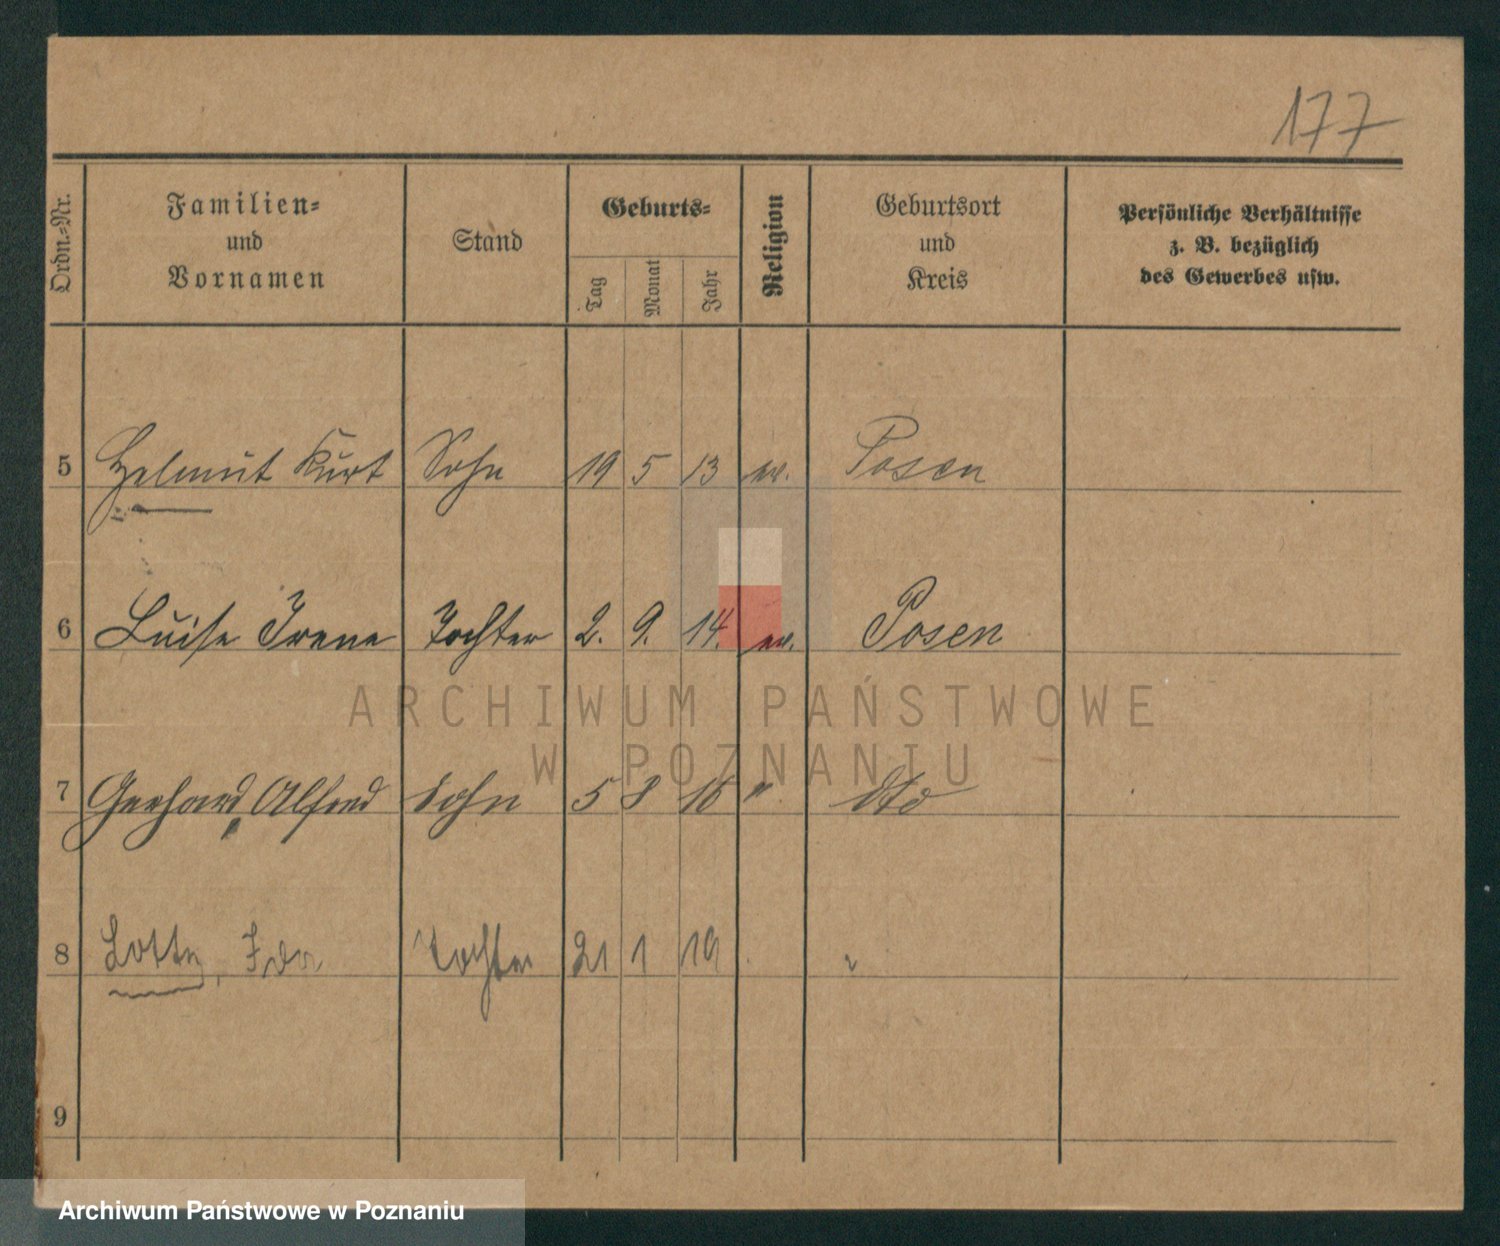 177
Ordn.-Nr. Familien- und Vornamen Stand Geburts- Tag Monat Jahr Religion Geburtsort und Kreis Persönliche Verhältnisse z. B. bezüglich des Gewerbes usw.
5 Helmut Kurt Sohn 19 5 13 ev. Posen
6 Luise Irene Tochter 2. 9. 14. ev. Posen
ARCHIWUM PAŃSTWOWE
W POZNANIU
7 Gerhard Alfred Sohn 5 8 16 " dto
8 Lotte, Tochter 21 1 19 "
9
Archiwum Państwowe w Poznaniu